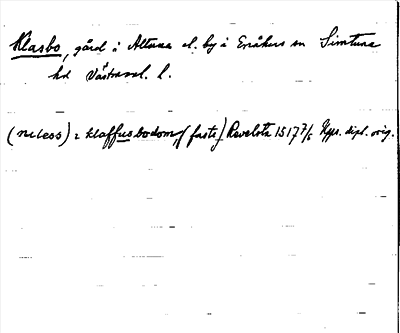 Klasbo, gård i Altuna el. by i Enåkers sn Simtuna
hd Västmanl. l.
(nc less) i klaffus bodom (faste) Revelsta 1517 7/5 Upps. dipl. orig.